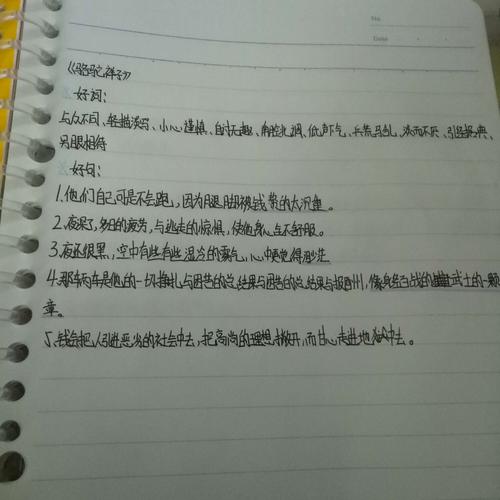 No.
Date
《骆驼祥子》
好词:
与众不同、轻描淡写、小心谨慎、自讨无趣、南腔北调、低声下气、兵荒马乱、浓而不厌、引经据典、
另眼相待
好句:
1.他们自己可是不会跑,因为腿脚被钱赘的太沉重。
2.夜深了,多日的疲劳,与逃走的惊惧,使他身心全不舒服。
3.夜还很黑,空中有些有些湿冷的雾气,心中更觉得渺茫
4.那辆车是他的一切挣扎与困苦的总结果与困苦的总结果与报酬,像身经百战的武士的一颗
章。
5.钱会把人引进恶劣的社会中去,把高尚的理想撇开,而甘心走进地狱中去。